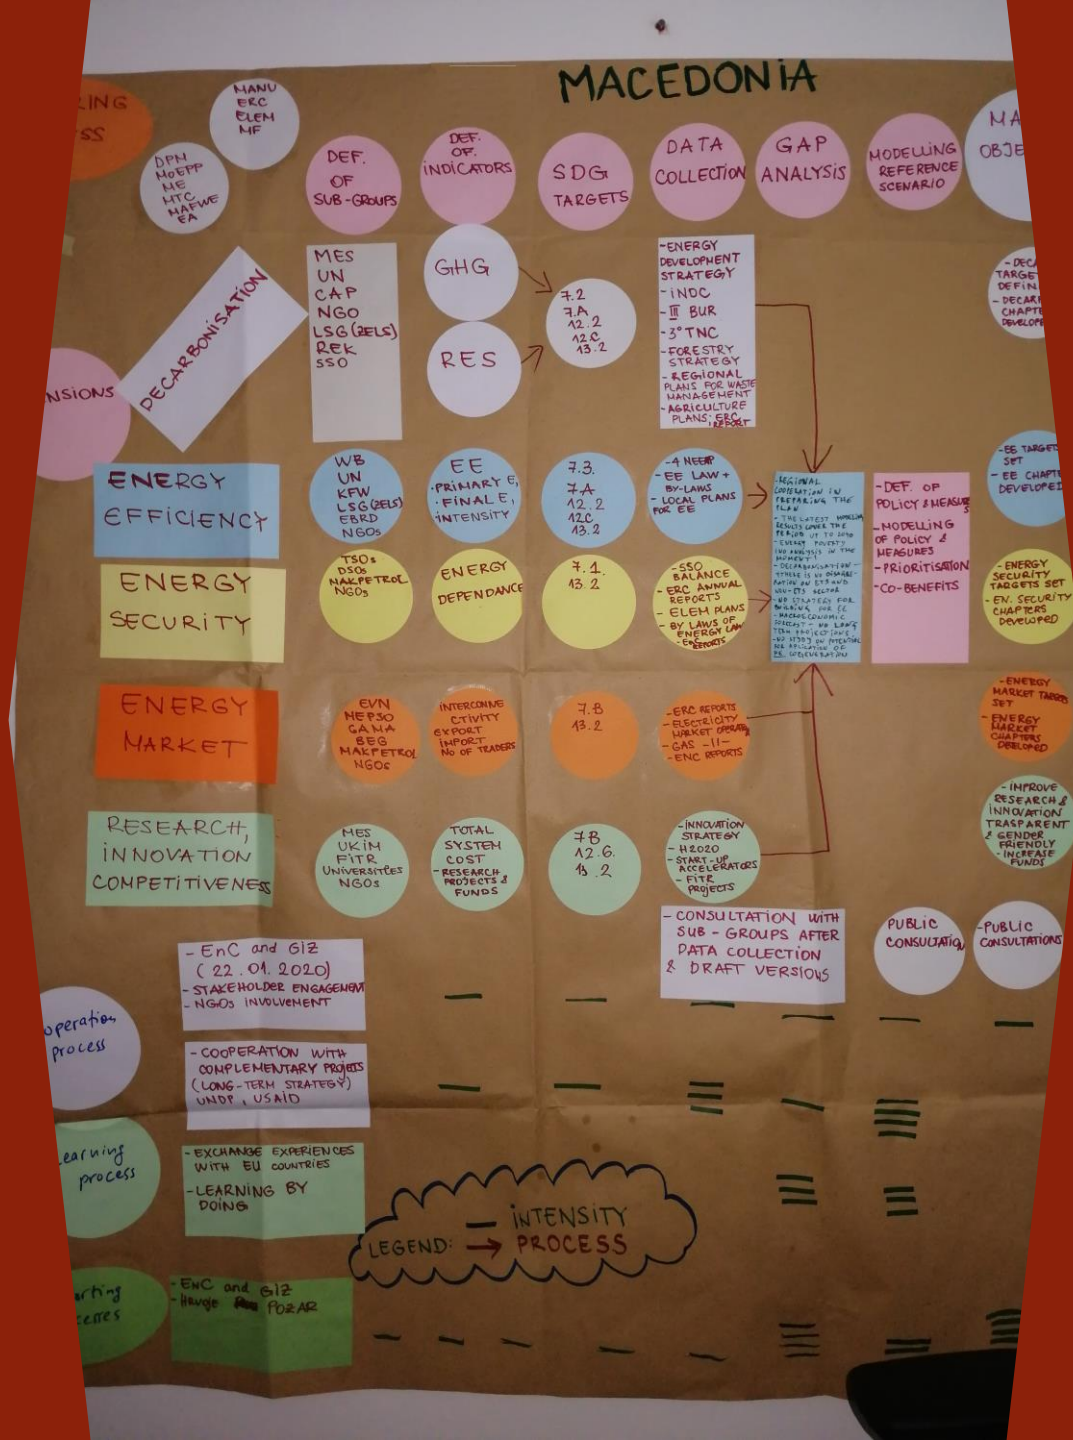 MACEDONIA
KING
SS
MANU
ERC
ELEM
MF
DPM
MOEPP
ME
MTC
MAFWE
EA
DEF.
OF
SUB-GROUPS
DEF.
OF.
INDICATORS
SDG
TARGETS
DATA
COLLECTION
GAP
ANALYSIS
MODELLING
REFERENCE
SCENARIO
MA
OBJE
NSIONS
DECARBONISATION
MES
UN
CAP
NGO
LSG(ZELS)
REK
SSO
GHG
RES
7.2
7.A
12.2
12.C
13.2
-ENERGY
DEVELOPMENT
STRATEGY
-INDC
-III BUR
-3° TNC
-FORESTRY
STRATEGY
-REGIONAL
PLANS FOR WASTE
MANAGEMENT
-AGRICULTURE
PLANS; ERC
REPORT
- DECA
TARGE
DEFIN
- DECAR
CHAPT
DEVELOP
ENERGY
EFFICIENCY
WB
UN
KFW
LSG(ZELS)
EBRD
NGOs
EE
·PRIMARY E,
·FINAL E,
INTENSITY
7.3.
7.A
12.2
12C
13.2
-4 NEEAP
- EE LAW +
BY-LAWS
- LOCAL PLANS
FOR EE
-REGIONAL
COOPERATION IN
PREPARING THE
PLAN
- THE LATEST MODELING
RESULTS COVER THE
PERIOD UP TO 2040
- ENERGY POVERTY
(NO ANALYSIS IN THE
MOMENT)
- DECARBONISATION -
THERE IS NO
ON ETS AND
NON-ETS SECTOR
-NO STRATEGY FOR
BUILDING FOR EE
-MACROECONOMIC
FORECAST - NO LONG
TERM PROJECTIONS
-NO STUDY ON POTENTIAL
FOR APPLICATION OF
COGENERATION
-DEF. OF
POLICY & MEASURES
-MODELLING
OF POLICY &
MEASURES
-PRIORITISATION
-CO-BENEFITS
-EE TARGETS
SET
- EE CHAPTE
DEVELOPED
ENERGY
SECURITY
TSOs
DSOs
MAKPETROL
NGOs
ENERGY
DEPENDANCE
7.1.
13.2
-SSO
BALANCE
- ERC ANNUAL
REPORTS
- ELEM PLANS
- BY LAWS OF
ENERGY LAW
-ERC REPORTS
- ENERGY
SECURITY
TARGETS SET
- EN. SECURITY
CHAPTERS
DEVELOPED
ENERGY
MARKET
EVN
MEPSO
GAMA
BEG
MAKPETROL
NGOs
INTERCONNE
CTIVITY
EXPORT
IMPORT
NO OF TRADERS
7.B
13.2
-ERC REPORTS
-ELECTRICITY
MARKET OPERATOR
- GAS -II-
- ENC REPORTS
- ENERGY
MARKET TARGETS
SET
- ENERGY
MARKET
CHAPTERS
DEVELOPED
RESEARCH,
INNOVATION
COMPETITIVENESS
MES
UKIM
FITR
UNIVERSITIES
NGOs
TOTAL
SYSTEM
COST
-RESEARCH
PROJECTS &
FUNDS
7B
12.6.
13.2
-INNOVATION
STRATEGY
- H2020
- START-UP
ACCELERATORS
- FITR
PROJECTS
-IMPROVE
RESEARCH &
INNOVATION
TRASPARENT
& GENDER
FRIENDLY
- INCREASE
FUNDS
- CONSULTATION WITH
SUB-GROUPS AFTER
DATA COLLECTION
& DRAFT VERSIONS
PUBLIC
CONSULTATION
-PUBLIC
CONSULTATIONS
operation
process
- EnC and GIZ
(22.01.2020)
- STAKEHOLDER ENGAGEMENT
- NGOs INVOLVEMENT
- COOPERATION WITH
COMPLEMENTARY PROJETS
(LONG-TERM STRATEGY)
UNDP, USAID
earning
process
- EXCHANGE EXPERIENCES
WITH EU COUNTRIES
-LEARNING BY
DOING
LEGEND: — INTENSITY
→ PROCESS
orting
cesses
- ENC and GIZ
- Hrvoje POZAR